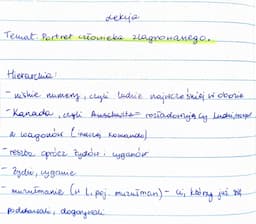 Lekcja
Temat: Portret człowieka zlagrowanego.
Hierarchia:
- niskie numery, czyli ludzie najwcześniej w obozie
- Kanada, czyli Auschwitz =
z wagonów ( Komando)
- reszta oprócz Żydów i cyganów
- Żydzi, cyganie
- muzułmanie (w l. poj. muzułman) - ci, którzy już się
poddawali, dogorywali